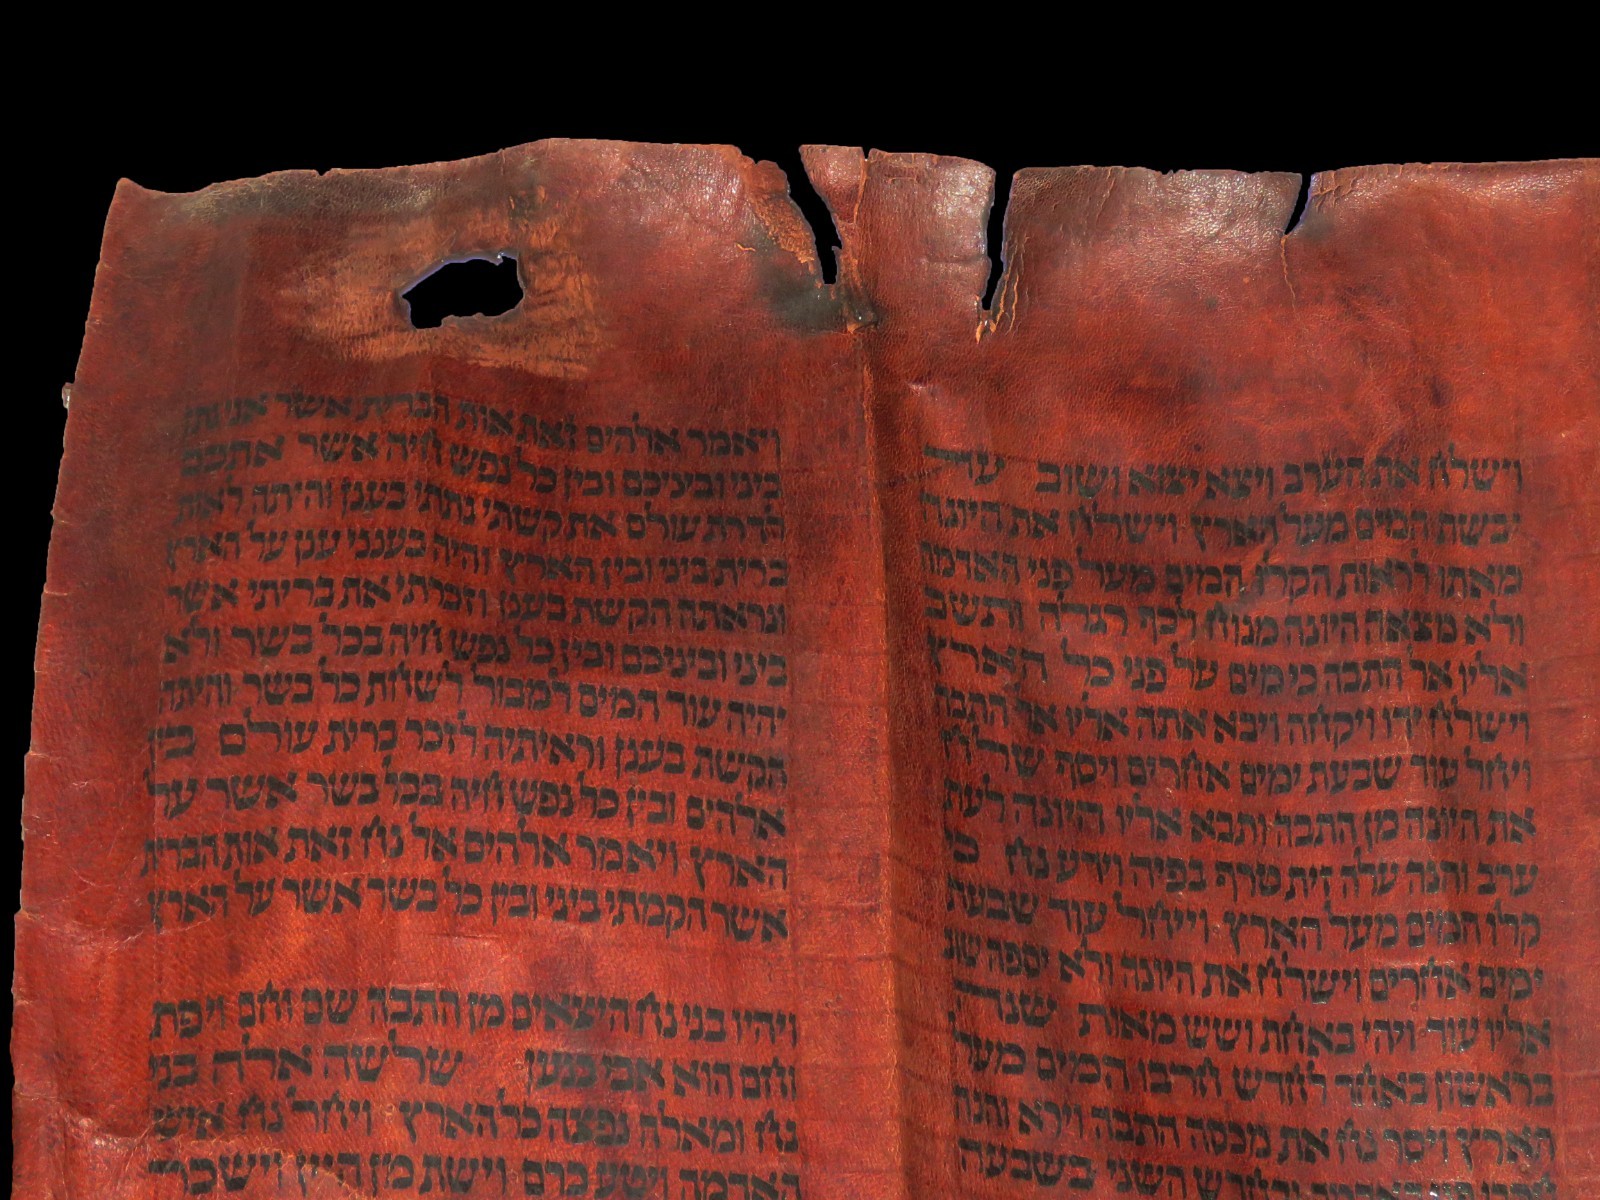 וישלח את הערב ויצא יצוא ושוב עד
יבשת המים מעל הארץ וישלח את היונה
מאתו לראות הקלו המים מעל פני האדמה
ולא מצאה היונה מנוח לכף רגלה ותשב
אליו אל התבה כי מים על פני כל הארץ
וישלח ידו ויקחה ויבא אתה אליו אל התבה
ויחל עוד שבעת ימים אחרים ויסף שלח
את היונה מן התבה ותבא אליו היונה לעת
ערב והנה עלה זית טרף בפיה וידע נח כי
קלו המים מעל הארץ וייחל עוד שבעת
ימים אחרים וישלח את היונה ולא יספה שוב
אליו עוד ויהי באחת ושש מאות שנה
בראשון באחד לחדש חרבו המים מעל
הארץ ויסר נח את מכסה התבה וירא והנה
חרבו פני האדמה ובחדש השני בשבעה
ויאמר אלהים זאת אות הברית אשר אני נתן
ביני וביניכם ובין כל נפש חיה אשר אתכם
לדרת עולם את קשתי נתתי בענן והיתה לאות
ברית ביני ובין הארץ והיה בענני ענן על הארץ
ונראתה הקשת בענן וזכרתי את בריתי אשר
ביני וביניכם ובין כל נפש חיה בכל בשר ולא
יהיה עוד המים למבול לשחת כל בשר והיתה
הקשת בענן וראיתיה לזכר ברית עולם בין
אלהים ובין כל נפש חיה בכל בשר אשר על
הארץ ויאמר אלהים אל נח זאת אות הברית
אשר הקמתי ביני ובין כל בשר אשר על הארץ
ויהיו בני נח היצאים מן התבה שם וחם ויפת
וחם הוא אבי כנען שלשה אלה בני
נח ומאלה נפצה כל הארץ ויחל נח איש
האדמה ויטע כרם וישת מן היין וישכר